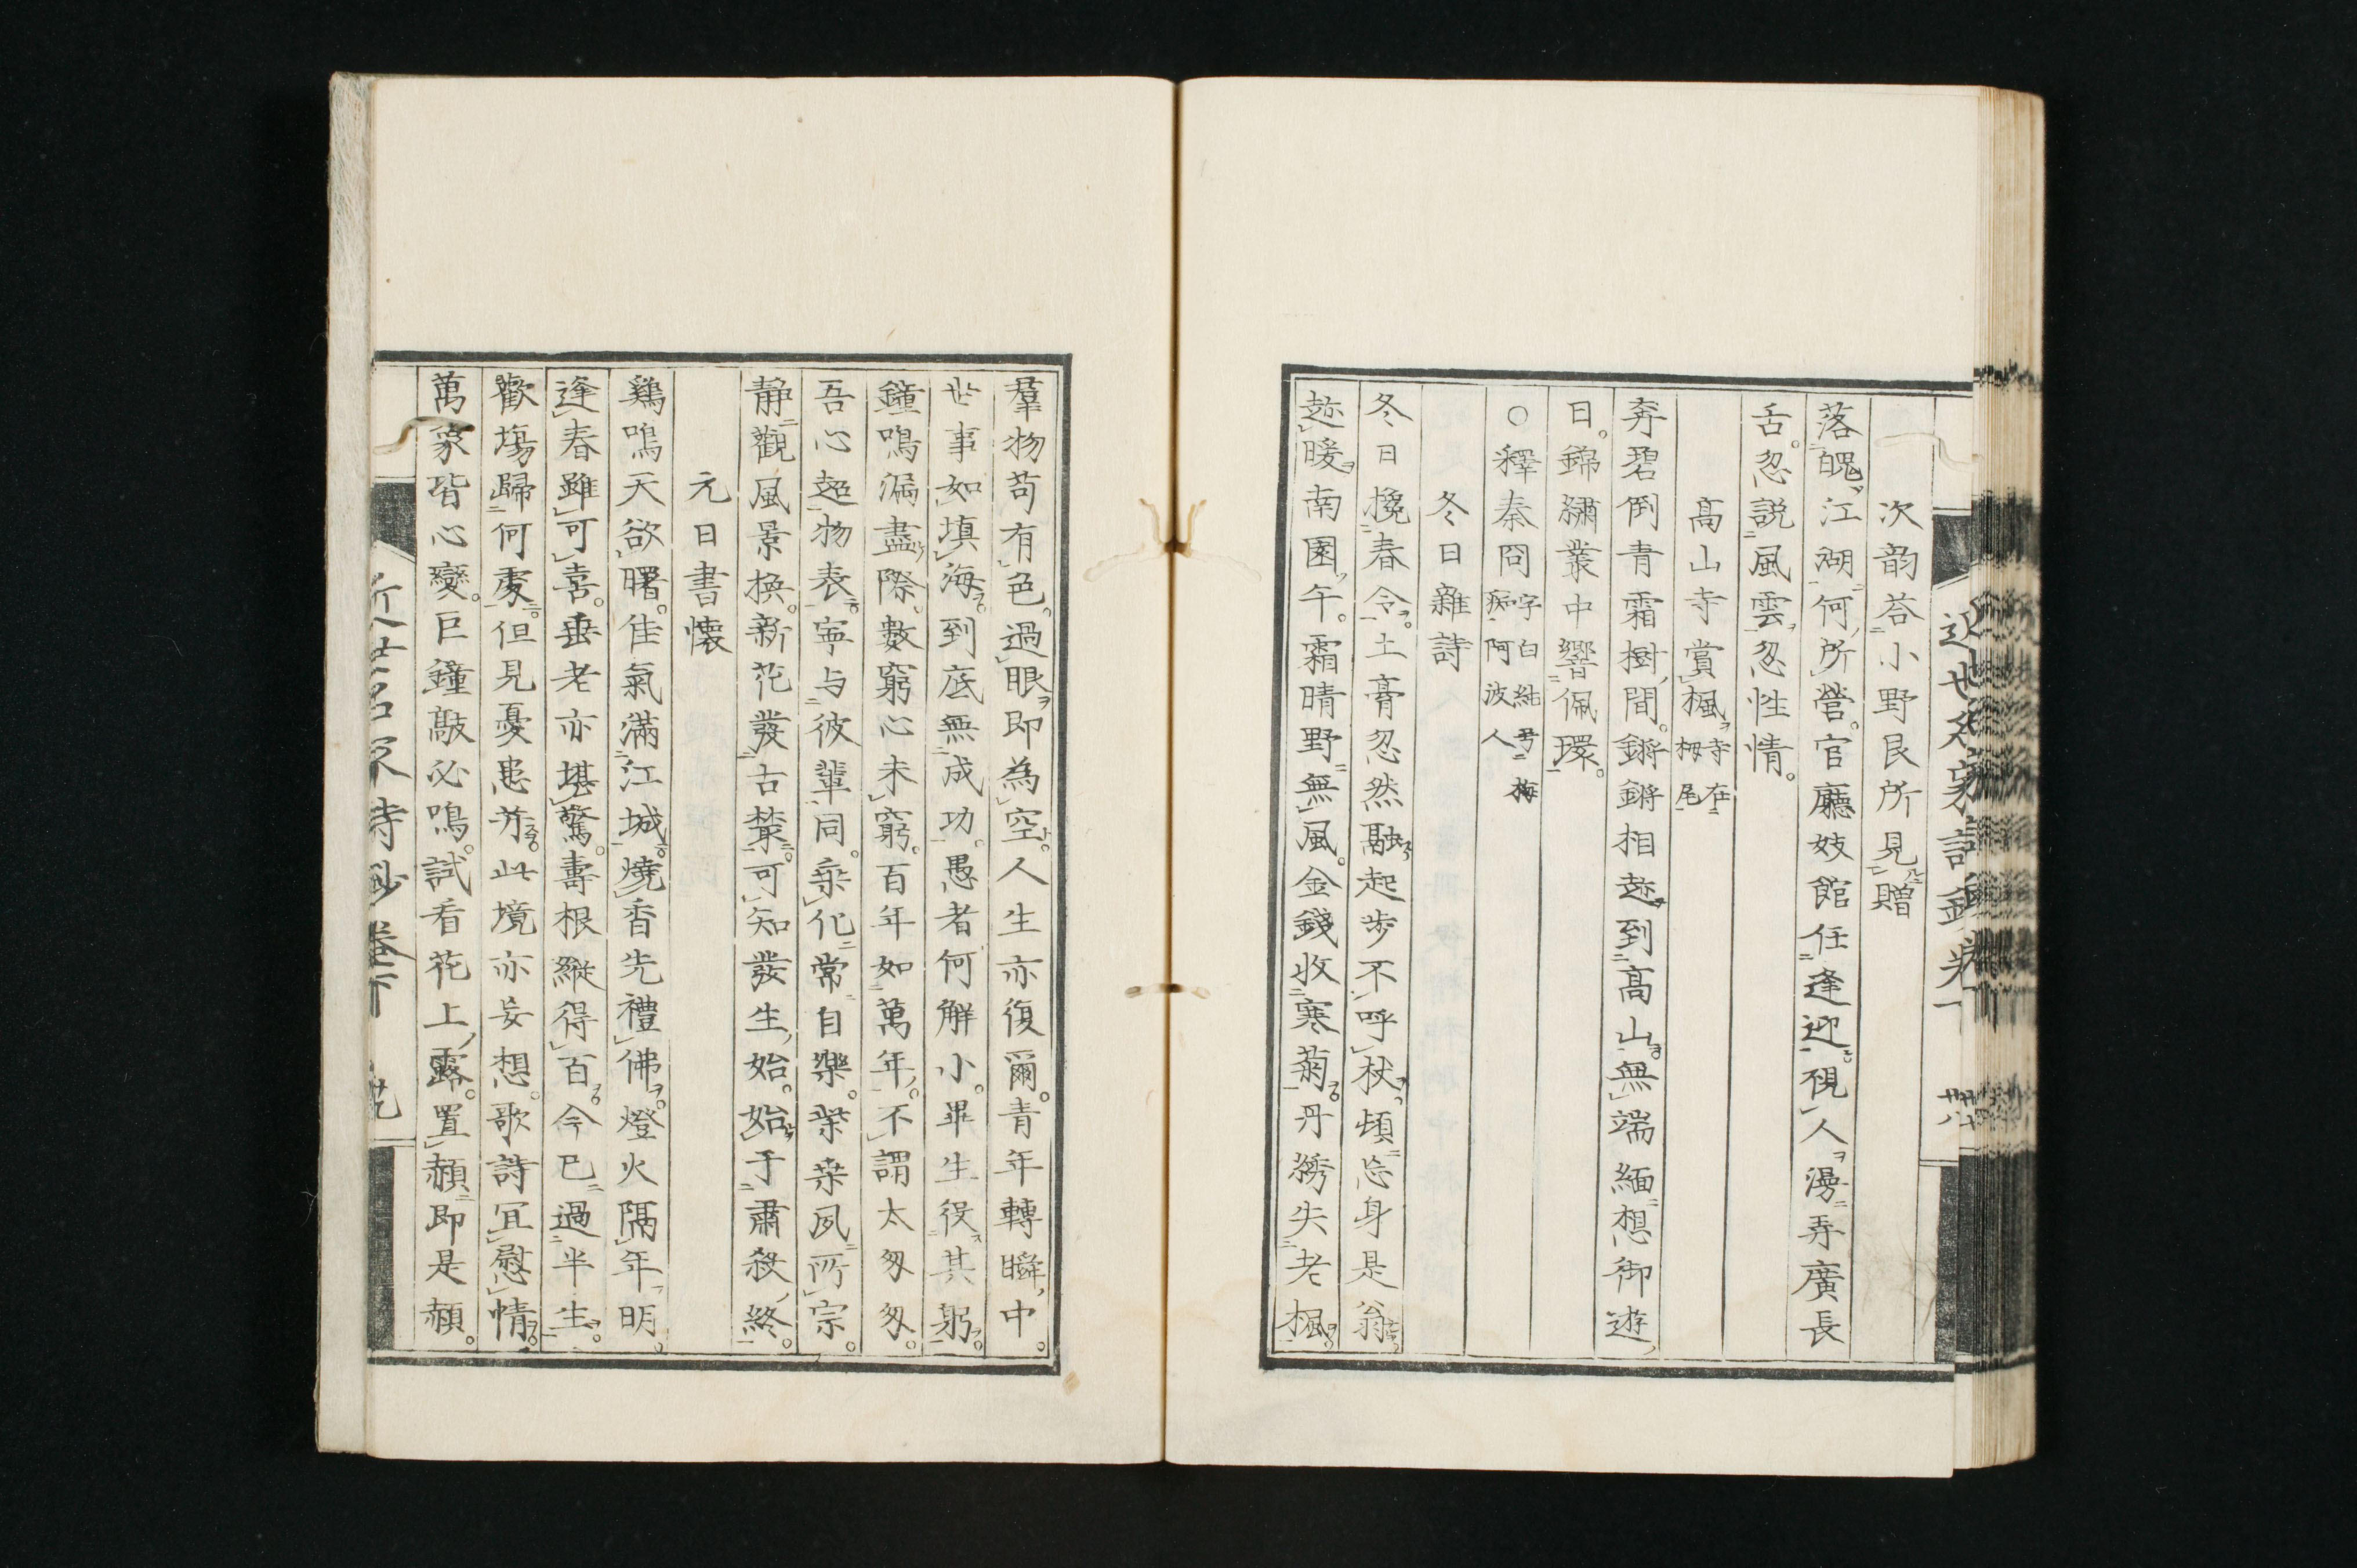 次韵荅小野艮所見贈
落魄江湖何所營官廳妓館任逢迎視人漫弄廣長
舌忽説風雲忽性情
高山寺賞楓寺在栂尾
奔碧倒青霜樹間鏘鏘相趂到高山無端緬想御遊
日錦繡叢中響佩環
○釋秦冏字白純号梅痴阿波人
冬日雜詩
冬日攙春令土膏忽然融起步不呼杖頃忘身是翁
趂暖南園午霜晴野無風金錢收寒菊丹綉失老楓
羣物苟有色過眼即為空人生亦復爾青年轉瞬中
世事如填海到底無成功愚者何解小畢生役其躬
鐘鳴漏盡際數窮心未窮百年如萬年不謂太匆匆
吾心超物表寧与彼輩同乘化常自樂柴桒夙所宗
静觀風景換新花發古叢可知發生始始于肅殺終
元日書懷
鷄鳴天欲曙佳氣滿江城燒香先禮佛燈火隔年明
逢春雖可喜垂老亦堪驚壽根縱得百今已過半生
歡塲歸何處但見憂患并此境亦妄想歌詩冝慰情
萬象皆心變巨鐘敲必鳴試看花上露置頳即是頳
近世名家詩鈔卷下